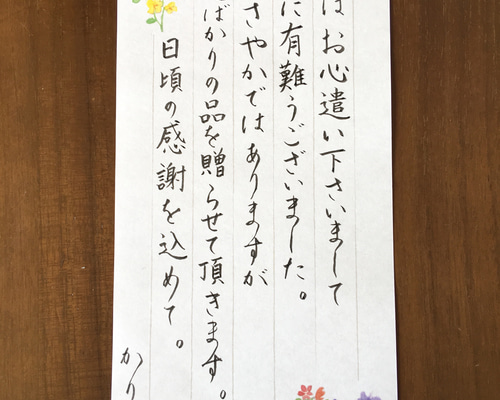 はお心遣い下さいまして
に有難うございました。
さやかではありますが
ばかりの品を贈らせて頂きます。
日頃の感謝を込めて。
かり